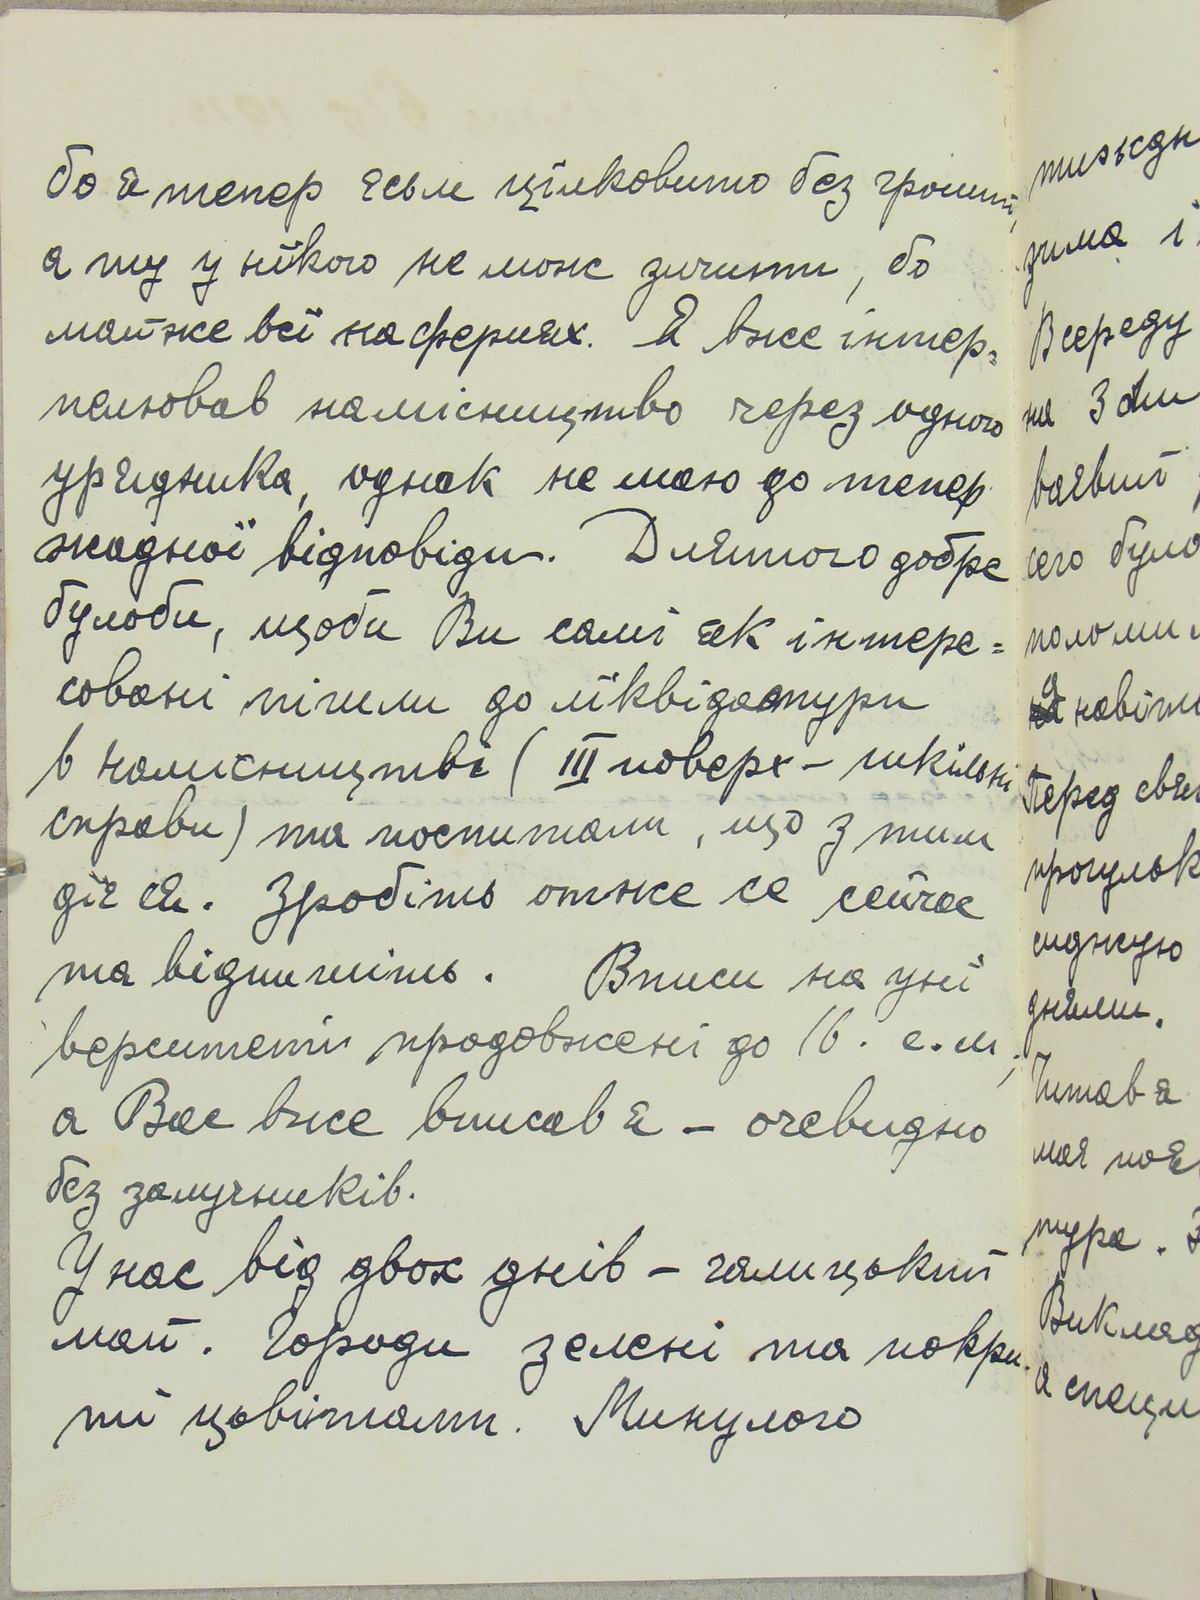 бо я тепер єсьм цілковито без гроший,
а ту у нїкого не мож зичити, бо
майже всї на фериях. Я вже інтер=
пелював намісництво через одного
урядника, однак не маю до тепер
жадної відповіди. Длятого добре
булоби, щоби Ви самі як інтере=
совані пішли до лїквідатури
в намісництві (III поверх – шкільні
справи) та поспитали, що з тим
дїє ся. Зробіть отже се сейчас
та відпишіть. Вписи на унї
верситетї продовжені до 16. с. м.,
а Вас вже вписав я – очевидно
без залучників.
У нас від двох днів – галицький
май. Городи зелені та покри-
ті цьвітами. Минулого
тиждн
зима і
Всереду
на 3 дни
ваявий
сего було
поломи
навіть
Перед свят
прогульк
сиджую
днями.
Читав я
моя поя
тура. З
Виклад
а специ